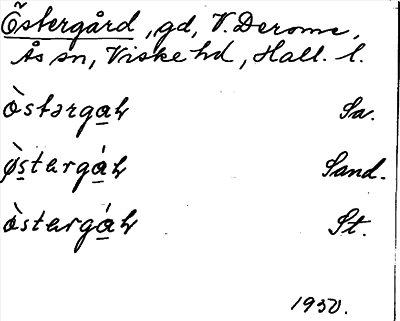 Östergård, gd, V. Derome,
Ås sn, Viske hd, Hall. l.
òstərga̲ꝶ Sa.
ø̀s̲tərgá̲ꝶ Sand.
òstərgá̲ꝶ St.
1950.